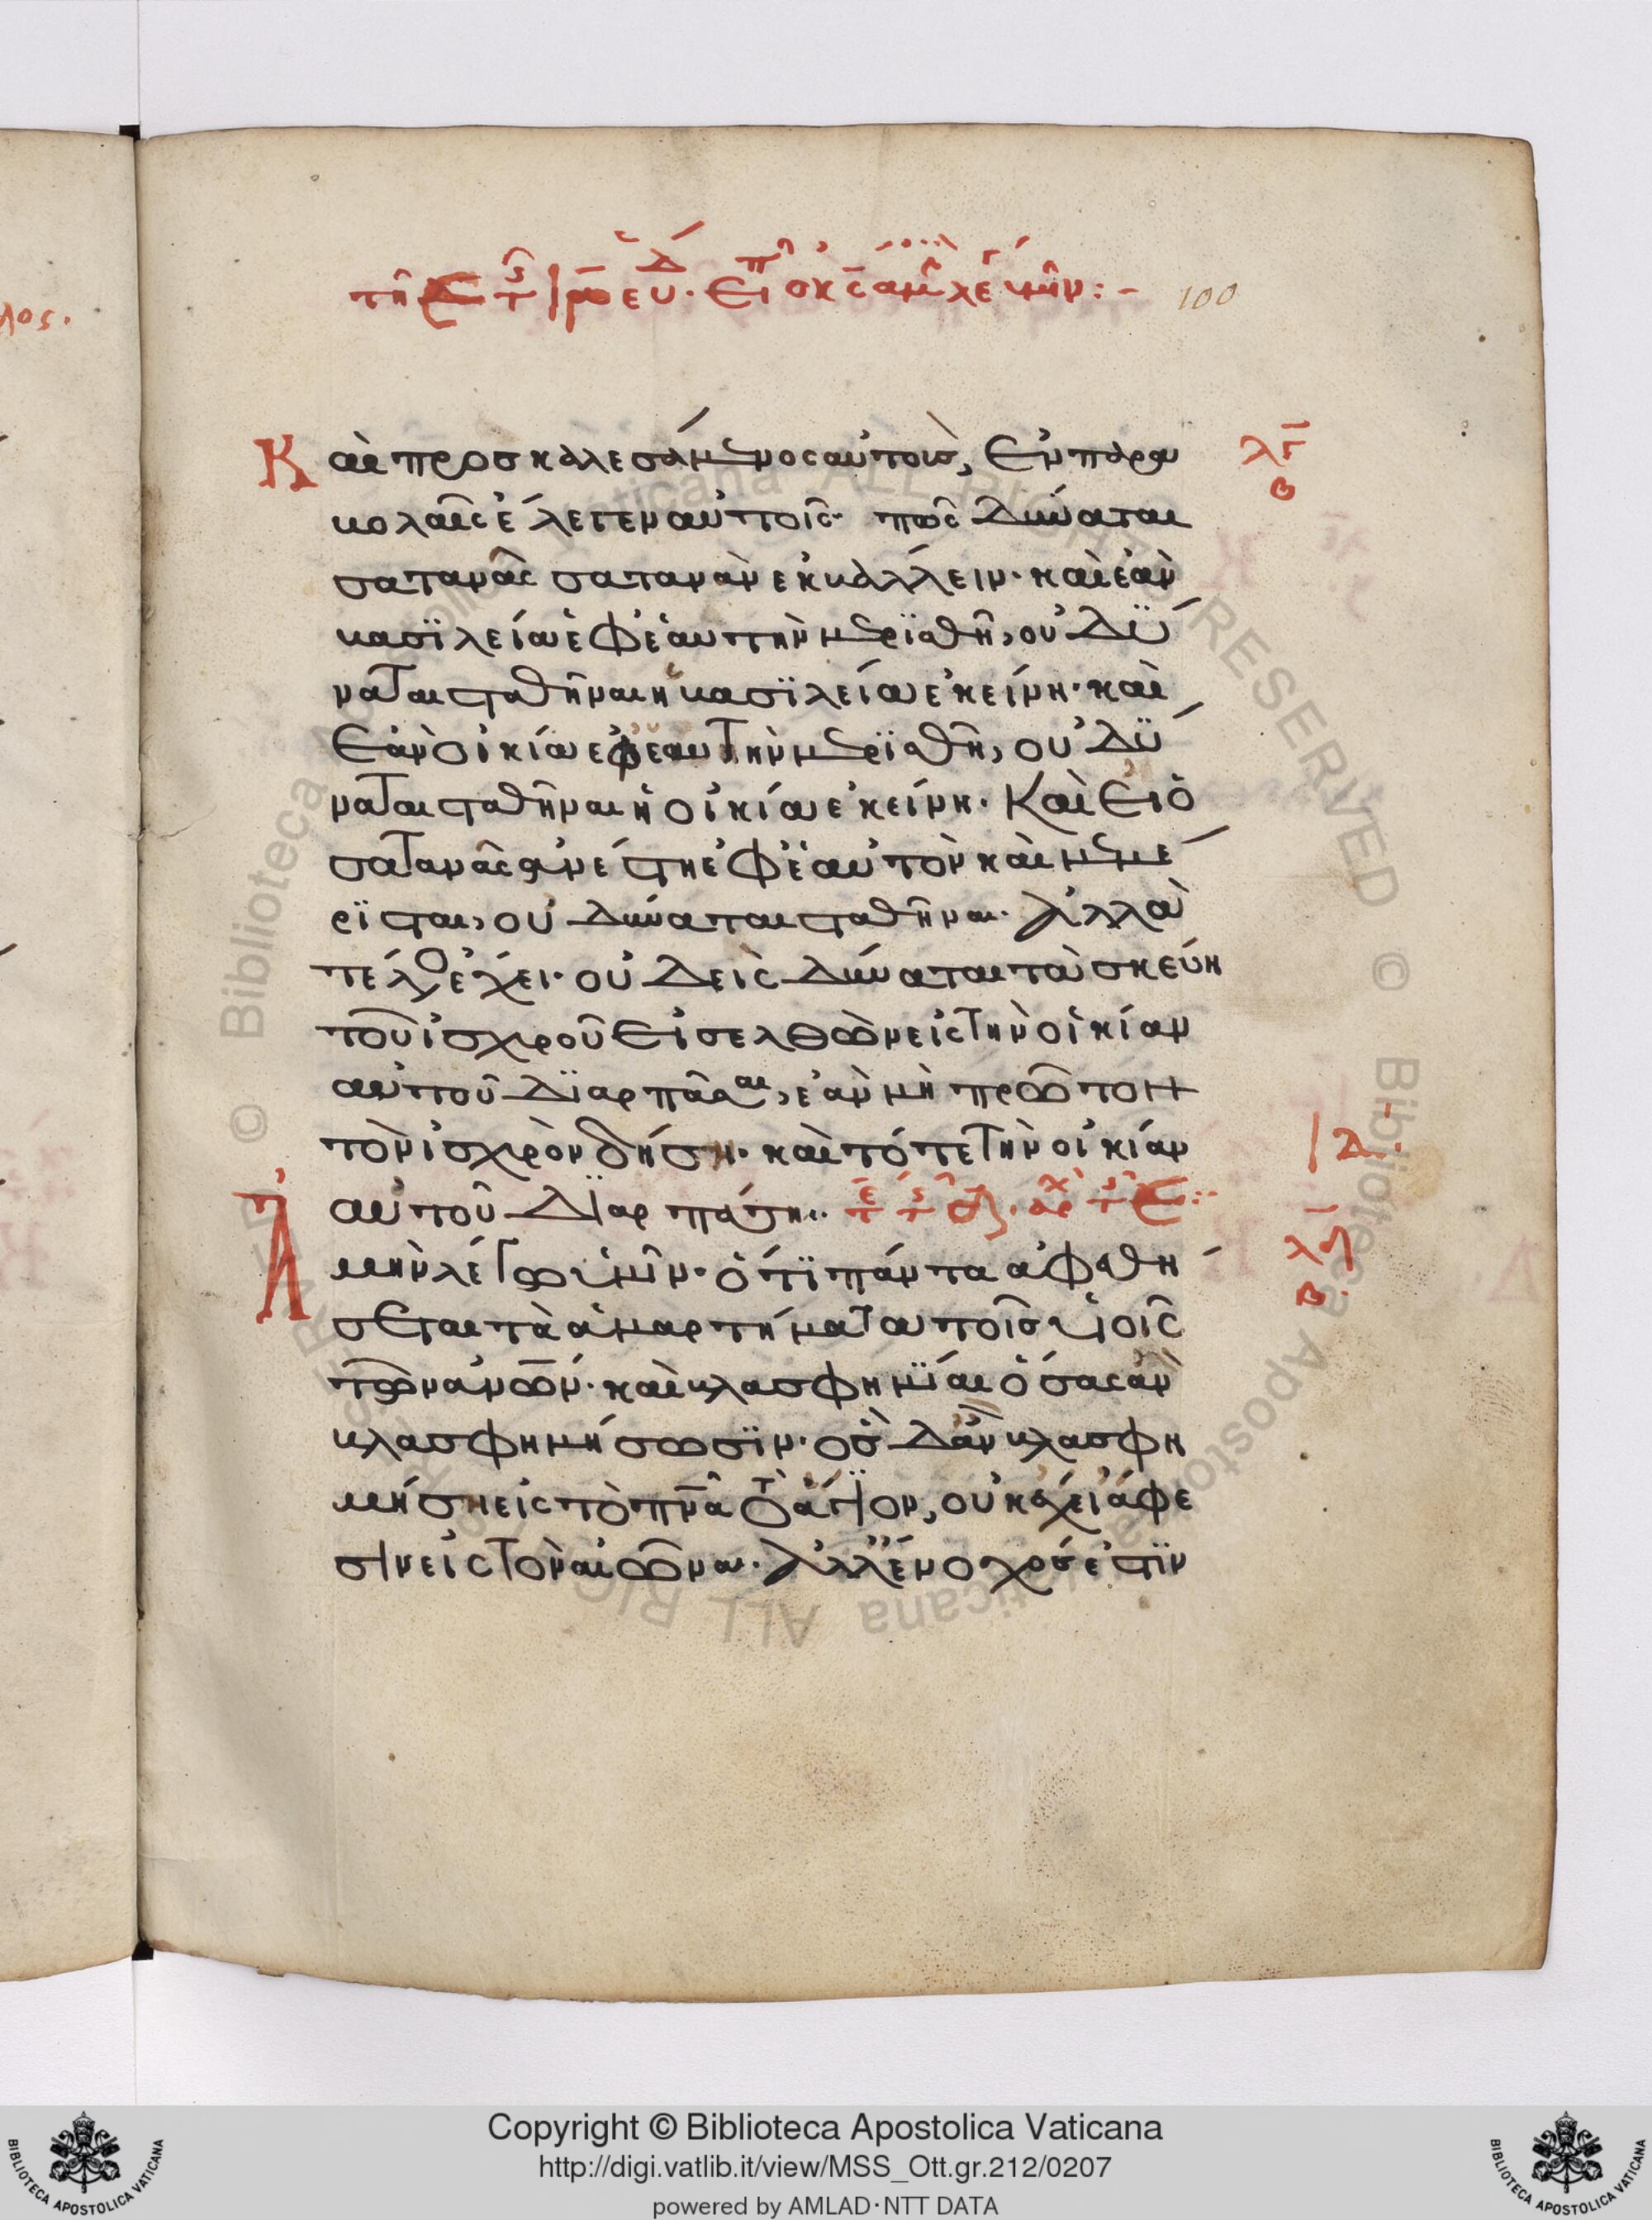 100
Καὶ προσκαλεσάμενος αὐτοὺς, ἐν παρα
βολαῖς ἔλεγεν αὐτοῖς· πῶς δύναται
σατανᾶς σατανὰν ἐκβάλλειν· καὶ ἐὰν
βασϊλεία ἐφ' ἑαυτὴν μερϊσθῆ, οὐ δϋ
ναται σταθῆναι ἡ βασϊλεία ἐκείνη· καὶ
ἐὰν οἰκία ἐφ' ἑαυτὴν μερϊσθῆ, οὐ δϋ
ναται σταθῆναι ἡ οἰκία ἐκείνη· Καὶ εἰ ὁ
σατανᾶς ἀνέστη ἐφ' ἑαυτὸν καὶ μεμέ
ρϊσται, οὐ δύναται σταθῆναι· ἀλλὰ
τέλος ἔχει· οὐδεὶς δύναται τὰ σκεύη
τοῦ ἰσχυροῦ εἰσελθὼν εἰς τὴν οἰκίαν
αὐτοῦ δϊαρπᾶσαι, ἐὰν μὴ πρῶτον
τὸν ἰσχυρὸν δήση· καὶ τότε τὴν οἰκίαν
αὐτοῦ δϊαρπάση·
Ἀμὴν λέγω ὑμῖν· ὅτϊ πάντα ἀφεθή
σεται τὰ ἁμαρτήματα τοῖς υἱοῖς
τῶν ἀνων· καὶ βλασφημϊαι ὅσας ἂν
βλασφημήσωσϊν· ὃς δ' ἂν βλασφη
μήση εἰς τὸ πνα τὸ ἅγϊον, οὐκ ἔχει ἄφε
σιν εἰς τὸν αἰῶνα· ἀλλ' ἔνοχός ἐστϊν
© Biblioteca Apostolica Vaticana ALL RIGHTS RESERVED
Copyright © Biblioteca Apostolica Vaticana
http://digi.vatlib.it/view/MSS_Ott.gr.212/0207
powered by AMLAD·NTT DATA
BIBLIOTECA APOSTOLICA VATICANA
BIBLIOTECA APOSTOLICA VATICANA